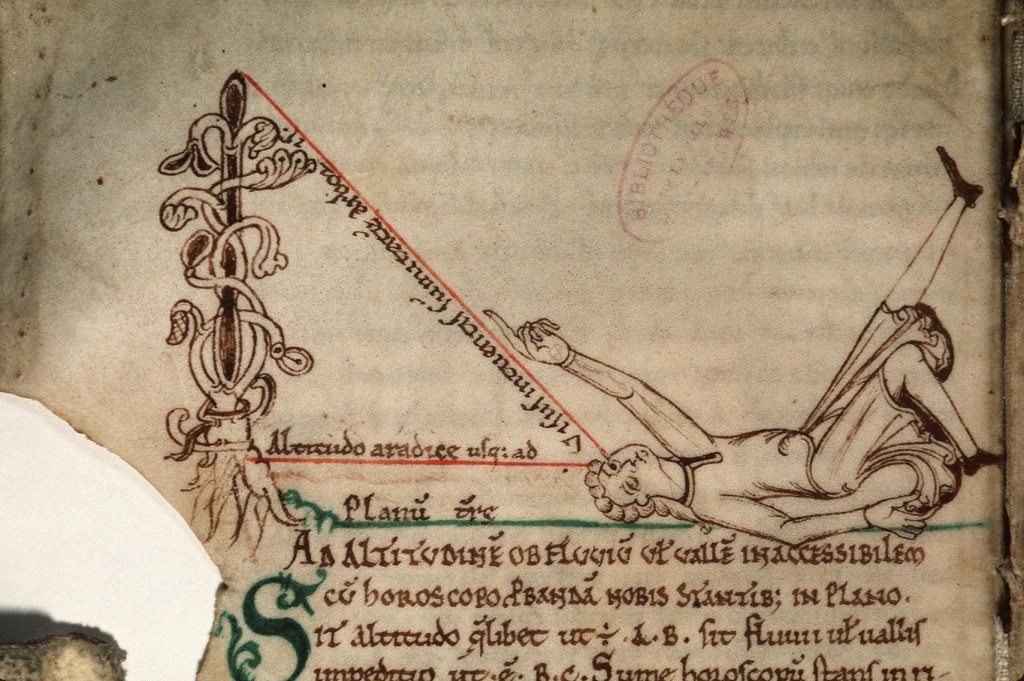 Visus inveniens summitatē arboris
Altitudo a radice usq: ad
Planū tre
AD ALTITUDINĒ OB FLUVIŪ Ul̄ VALLĒ INACCESSIBILEM
CŪ HOROSCOPO PBANDĀ NOBIS STANTIB; IN PLANO.
SIT Altitudo qͣlibet ut ÷ .A.B. sit fluuii ul̄ uallis
impeditio ut .ē. B.C. Sume horoscopū stans in ri-
BIBLIOTHÈQUE